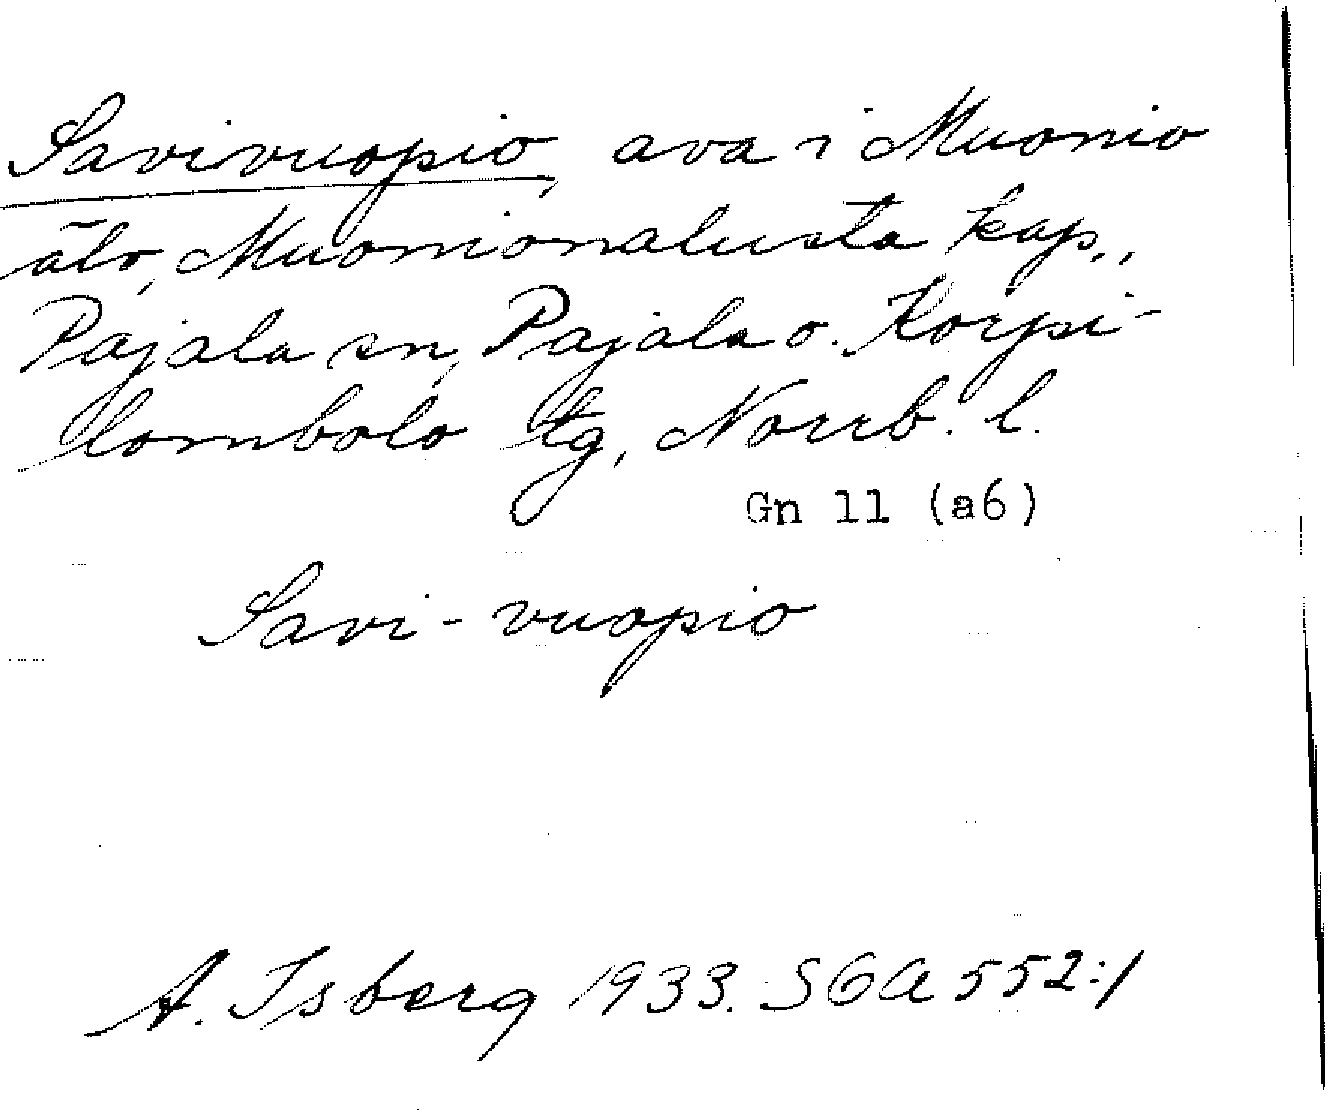 Savivuopio, ava i Muonio
älv, Muonionalusta kap.,
Pajala sn, Pajala o. Korpi-
lombolo tg, Norrb. l.
Gn 11 (a6)
Savi-vuopio
A. Isberg 1933. SGA 552:1